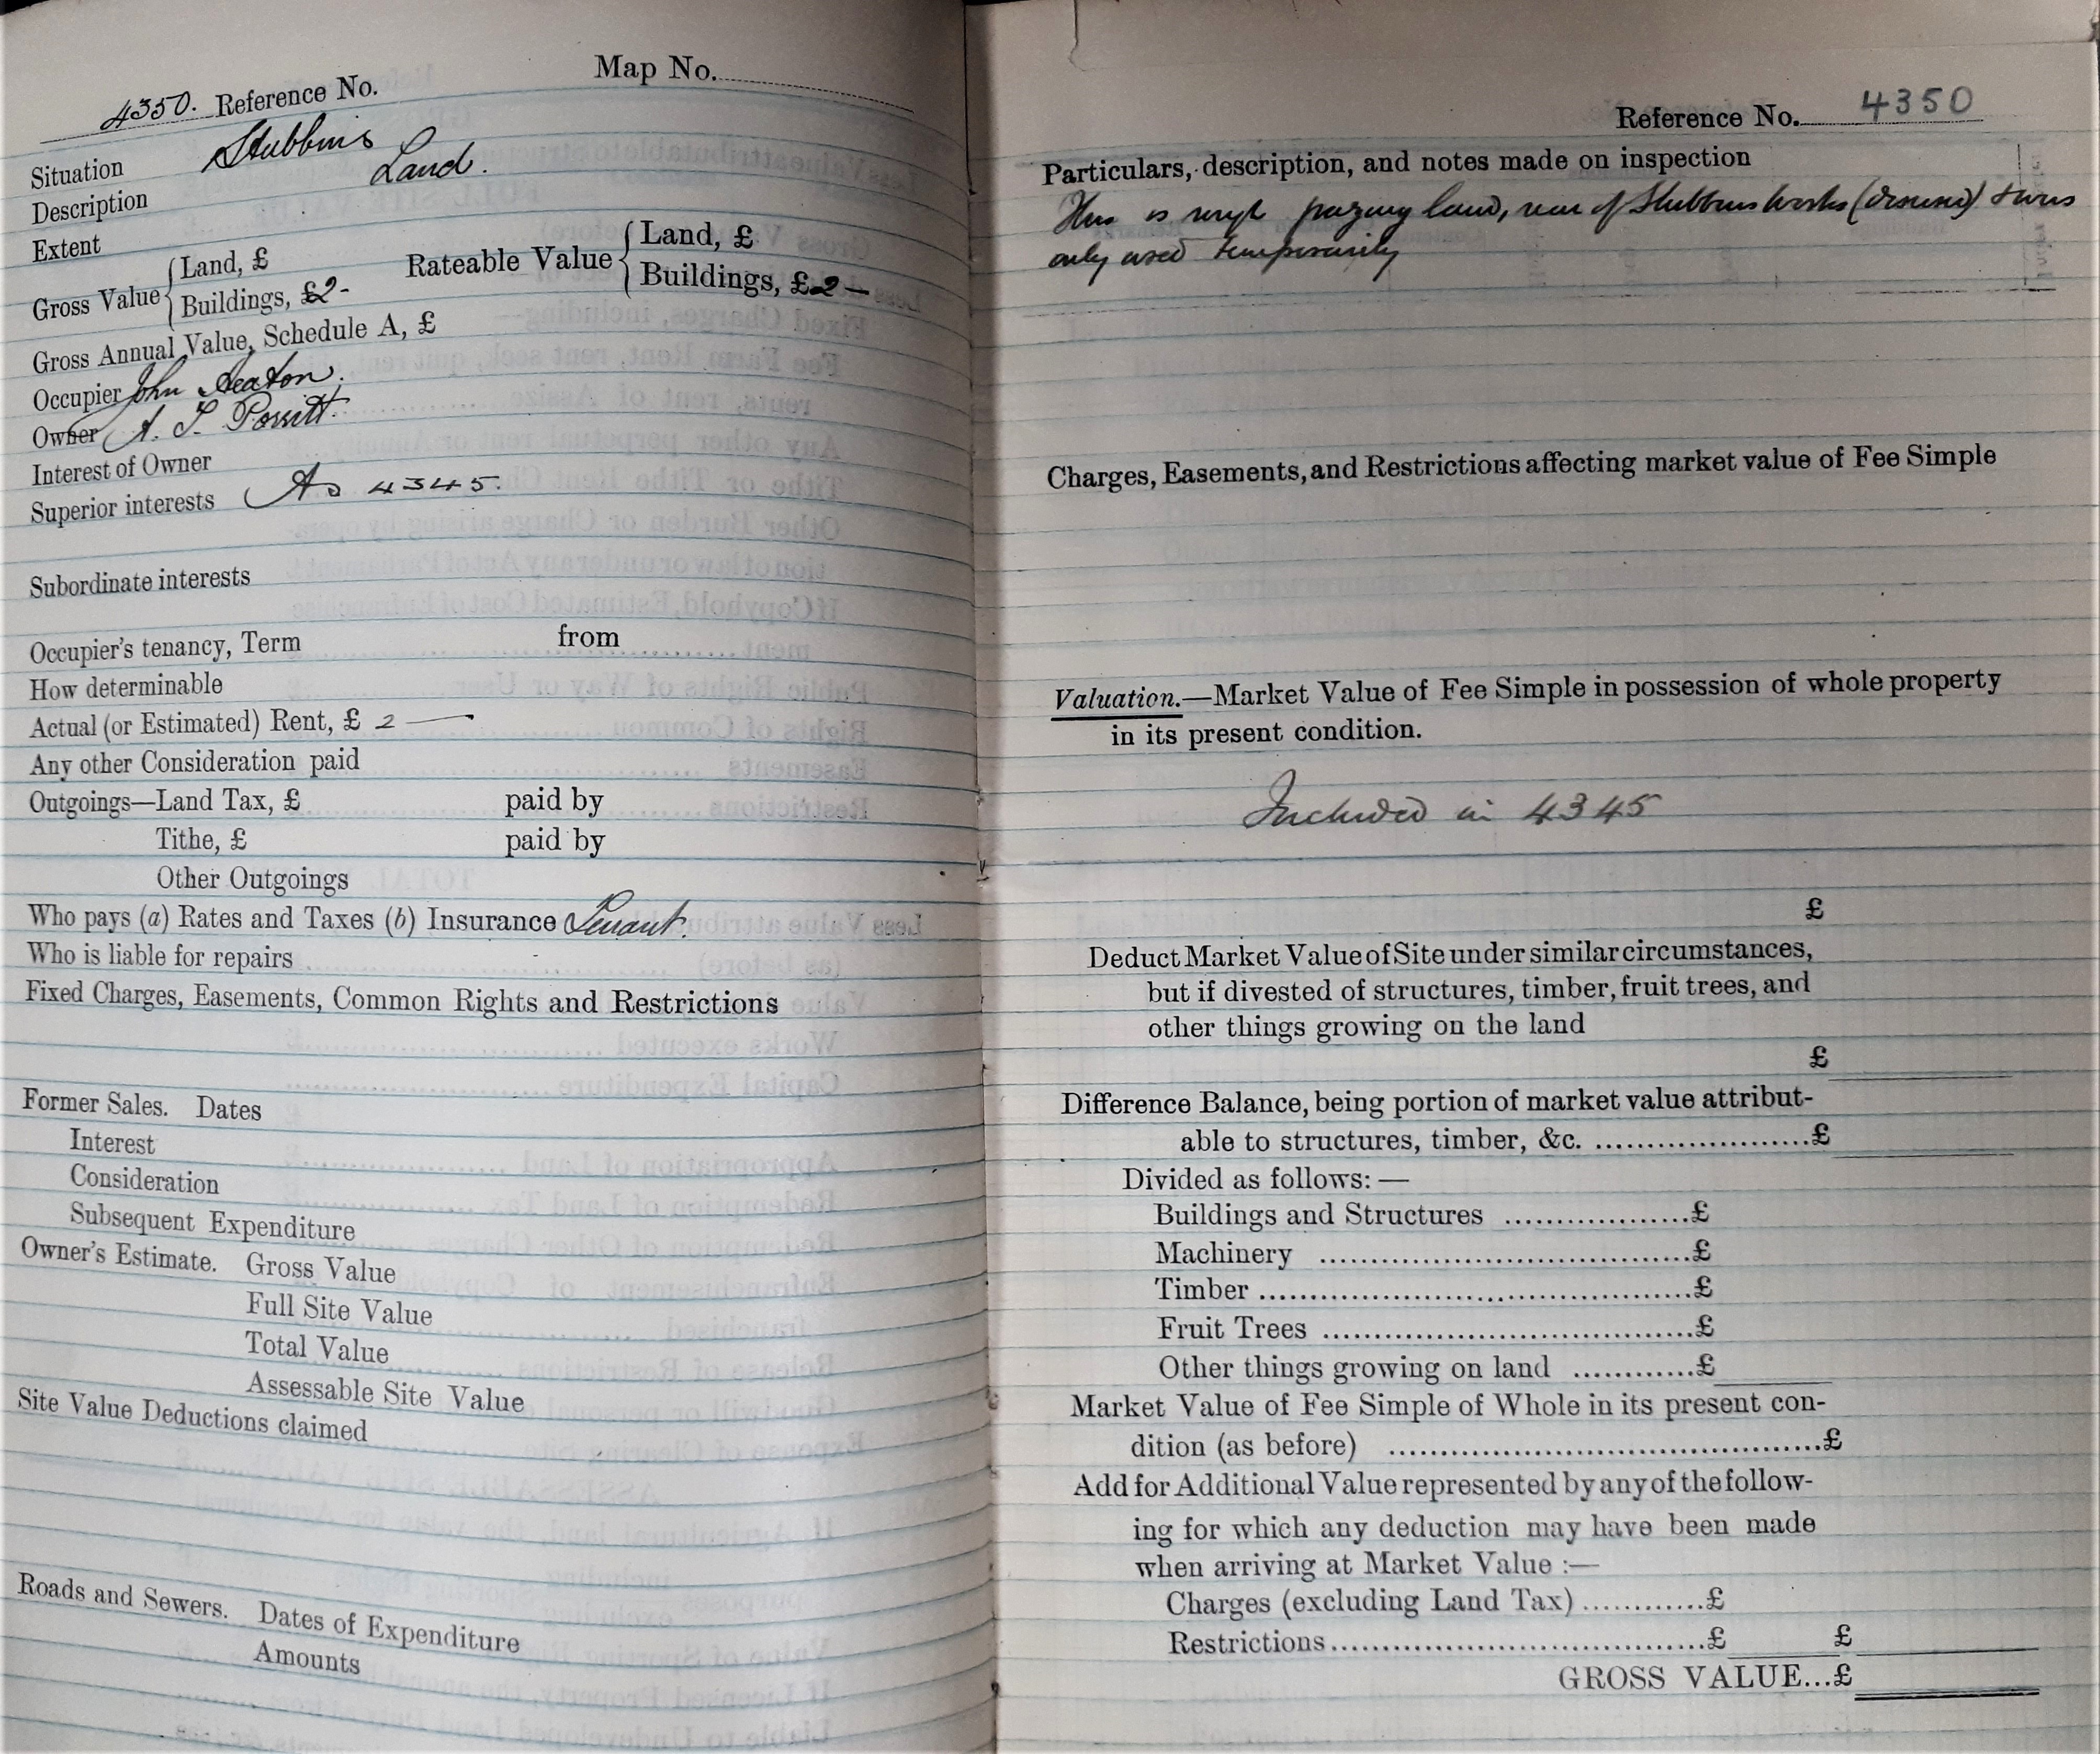 Map No.
4350. Reference No.
Situation Stubbins
Description Land.
Extent
Gross Value { Land, £
Buildings, £2 -
Rateable Value { Land, £
Buildings, £2 —
Gross Annual Value, Schedule A, £
Occupier John Heaton,
Owner A. T. Porritt.
Interest of Owner
Superior interests As 4345.
Subordinate interests
Occupier's tenancy, Term from
How determinable
Actual (or Estimated) Rent, £ 2 —
Any other Consideration paid
Outgoings—Land Tax, £ paid by
Tithe, £ paid by
Other Outgoings
Who pays (a) Rates and Taxes (b) Insurance Tenant.
Who is liable for repairs
Fixed Charges, Easements, Common Rights and Restrictions
Former Sales. Dates
Interest
Consideration
Subsequent Expenditure
Owner's Estimate. Gross Value
Full Site Value
Total Value
Assessable Site Value
Site Value Deductions claimed
Roads and Sewers. Dates of Expenditure
Amounts
Reference No. 4350
Particulars, description, and notes made on inspection
This is rough grazing land, rear of Stubbins Works (disused) & was
only used temporarily
Charges, Easements, and Restrictions affecting market value of Fee Simple
Valuation.—Market Value of Fee Simple in possession of whole property
in its present condition.
Included in 4345
£
Deduct Market Value of Site under similar circumstances,
but if divested of structures, timber, fruit trees, and
other things growing on the land
£
Difference Balance, being portion of market value attribut-
able to structures, timber, &c. .....................£
Divided as follows: —
Buildings and Structures ..................£
Machinery ....................................£
Timber ..........................................£
Fruit Trees ....................................£
Other things growing on land ............£
Market Value of Fee Simple of Whole in its present con-
dition (as before) ..........................................£
Add for Additional Value represented by any of the follow-
ing for which any deduction may have been made
when arriving at Market Value :—
Charges (excluding Land Tax) ............£
Restrictions.....................................£ £
GROSS VALUE...£